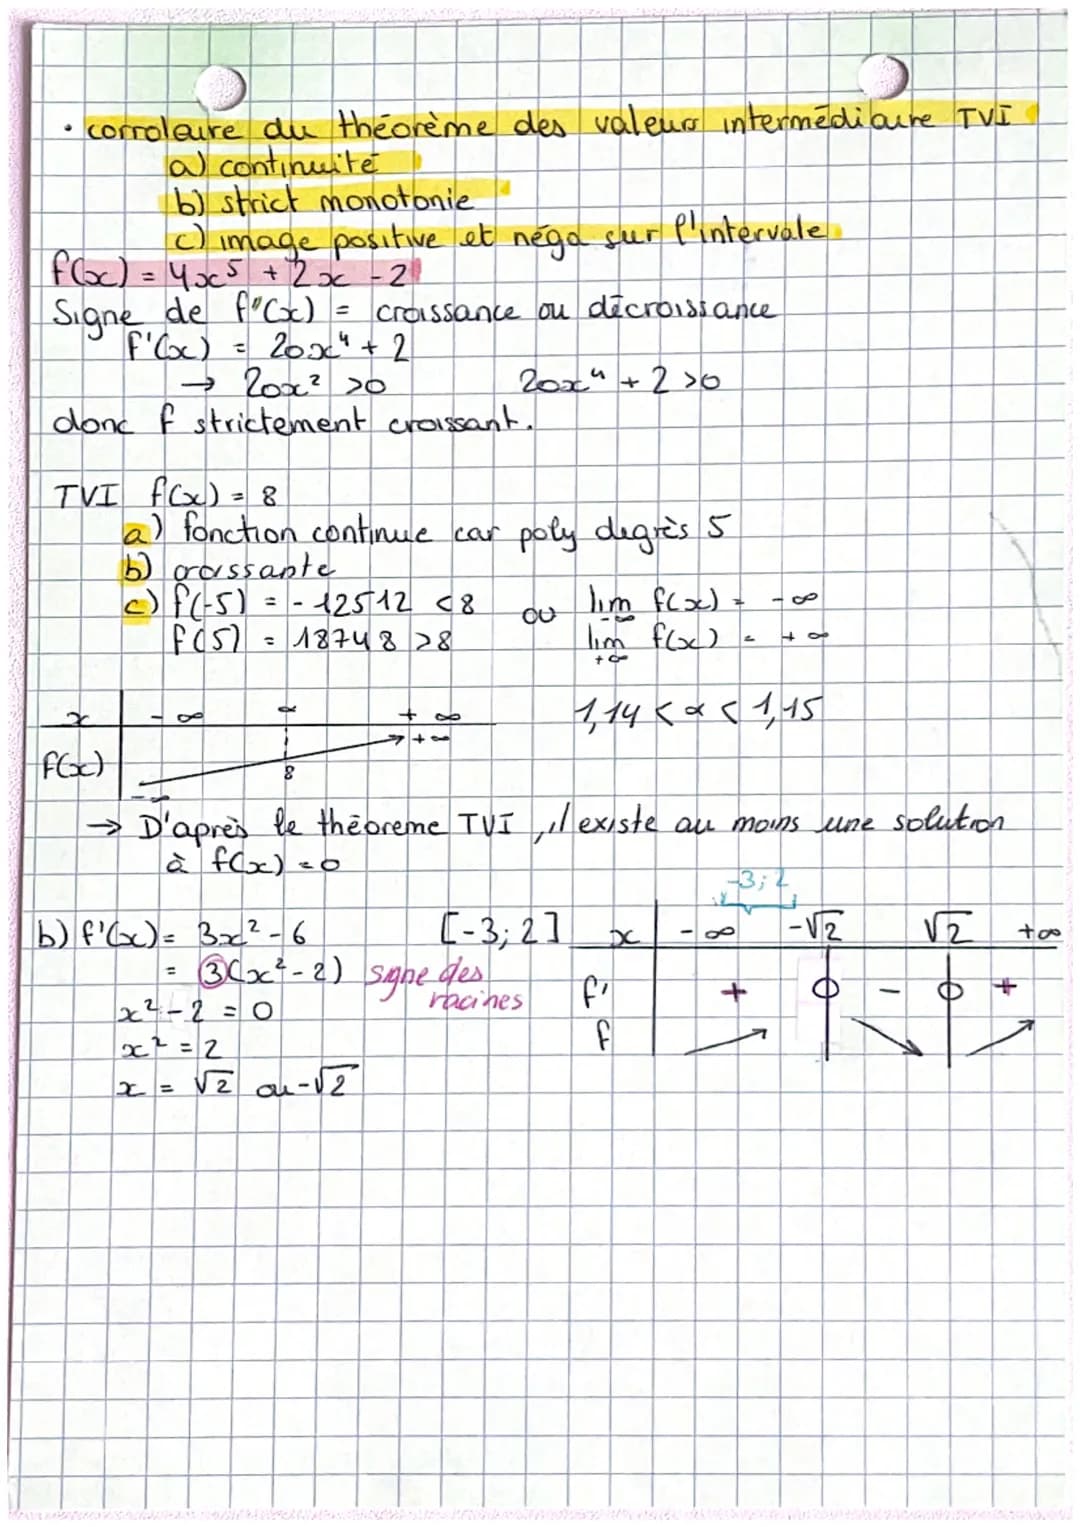 • corrolaire du théorème des valeurs intermédiaire TVI
a) continuité
b) strict monotonie
c) image positive et néga sur l'intervale
f(x) = 4x⁵ + 2x - 2
Signe de f'(x) = croissance ou décroissance
f'(x) = 20x⁴ + 2
→ 20x² >0 20x⁴ + 2 >0
donc f strictement croissant.
TVI f(x) = 8
a) fonction continue car poly degrès 5
b) croissante
c) f(-5) = - 12512 <8 ou lim f(x) = -∞
-∞
f(5) = 18748 >8 lim f(x) = +∞
+∞
x -∞ α +∞ 1,14 < α < 1,15
f(x) -∞ 8 +∞
→ D'après le théoreme TVI, il existe au moins une solution
à f(x) = 0
-3; 2
b) f'(x) = 3x² - 6 [-3; 2] x -∞ -√2 √2 +∞
= 3(x² - 2) signe des
racines f' + 0 - 0 +
x² - 2 = 0 f
x² = 2
x = √2 ou -√2